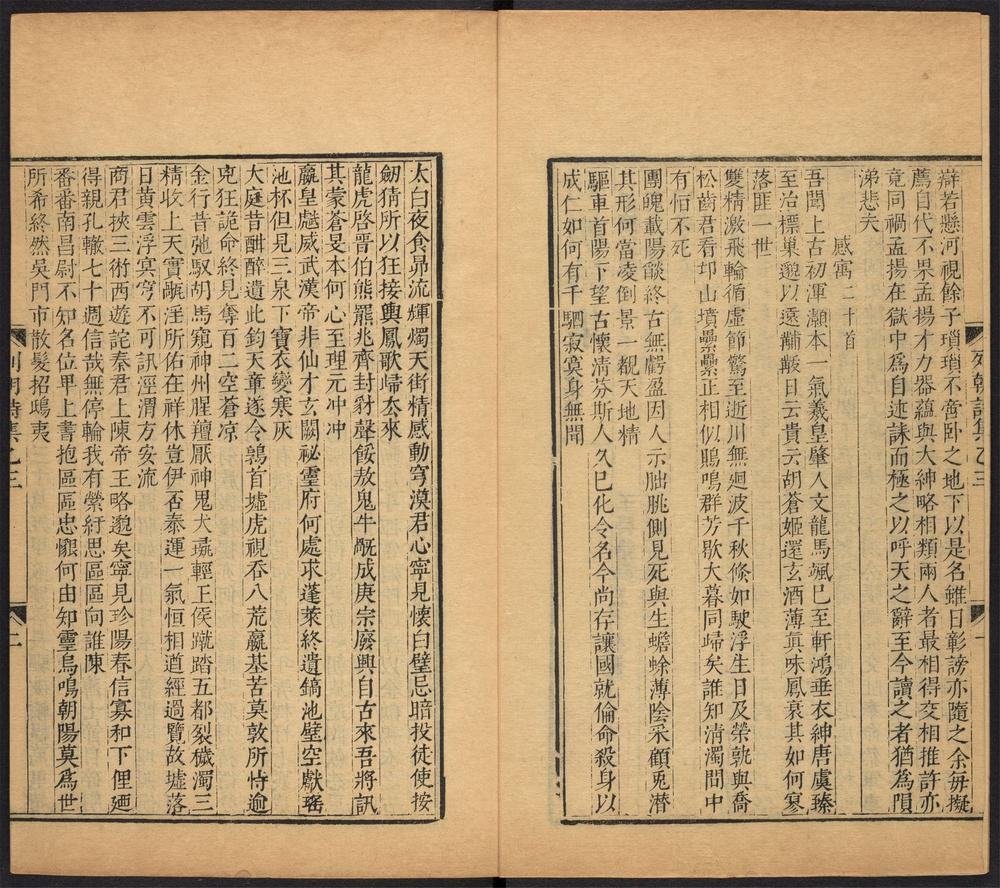 辯若懸河視餘子瑣瑣不啻卧之地下以是名雖日彰謗亦隨之余毎擬
薦自代不果孟揚才力器蘊與大紳略相類兩人者最相得交相推許亦
竟同禍孟揚在獄中爲自迹誄而極之以呼天之辭至今讀之者猶爲隕
涕悲夫
感寓二十首
吾聞上古初渾灝本一氣羲皇肇人文龍馬颯巳至軒鴻垂衣紳唐虞臻
至治標巢邈以遠黼黻日云貴云胡蒼姬還玄酒薄真味鳳衰其如何寥
落匪一世
雙精激飛輪循虛節驚至逝川無廻波千秋倐如駛浮生日及榮孰與喬
松齒君看邙山墳纍纍正相似鵙鳴群芳歇大暮同歸矣誰知淸濁間中
有恒不死
團魄載陽燄終古無虧盈因人示朏朓側見死與生蟾蜍薄陰采顧兎潜
其形何當凌倒景一覩天地精
驅車首陽下望古懷淸芬斯人久已化令名今尚存讓國就倫命殺身以
成仁如何有千駟寂寞身無聞
列朝詩集乙三
一
太白夜食昴流輝燭天街精感動穹漠君心寧見懷白璧忌暗投徒使按
劒猜所以狂接輿鳳歌歸去來
龍虎啓晋伯熊羆兆齊封豺聲餒敖鬼牛㽃成庚宗廢興自古來吾將訊
其蒙蒼旻本何心至理元冲冲
嬴皇飈威武漢帝非仙才玄闕祕靈府何處求蓬萊終遺鎬池璧空獻瑤
池杯但見三泉下寶衣變寒灰
大庭昔酣醉遺此鈞天童遂令鶉首墟虎視呑八荒嬴基苦莫敦所恃逾
兇狂詭命終見奪百二空蒼凉
金行昔弛馭胡馬窺神州腥羶厭神鬼犬彘輕王侯蹴踏五都裂穢濁三
精收上天實眡淫所佑在祥休豈伊否泰運一氣恒相遒經過覽故墟落
日黄雲浮㝠穹不可訊涇渭方安流
商君挾三術西遊詫秦君上陳帝王略邈矣寧見珍陽春信寡和下俚廼
得親孔轍七十週信哉無停輪我有縈紆思區區向誰陳
番番南昌尉不知名位甲上書抱區區忠懇何由知靈烏鳴朝陽莫爲世
所希終然吳門市散髮招鴟夷
列朝詩集乙三
二